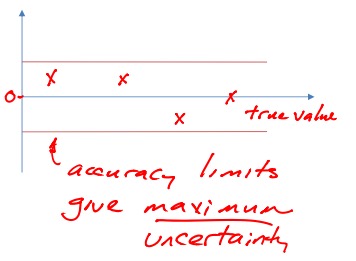 0
true value
accuracy limits
give maximum
uncertainty